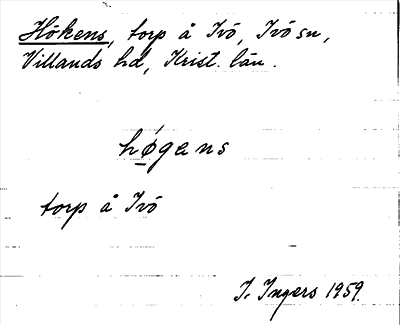 Hökens, torp å Ivö, Ivö sn,
Villands hd, Krist. län.
høgens
torp å Ivö
I. Ingers 1959.